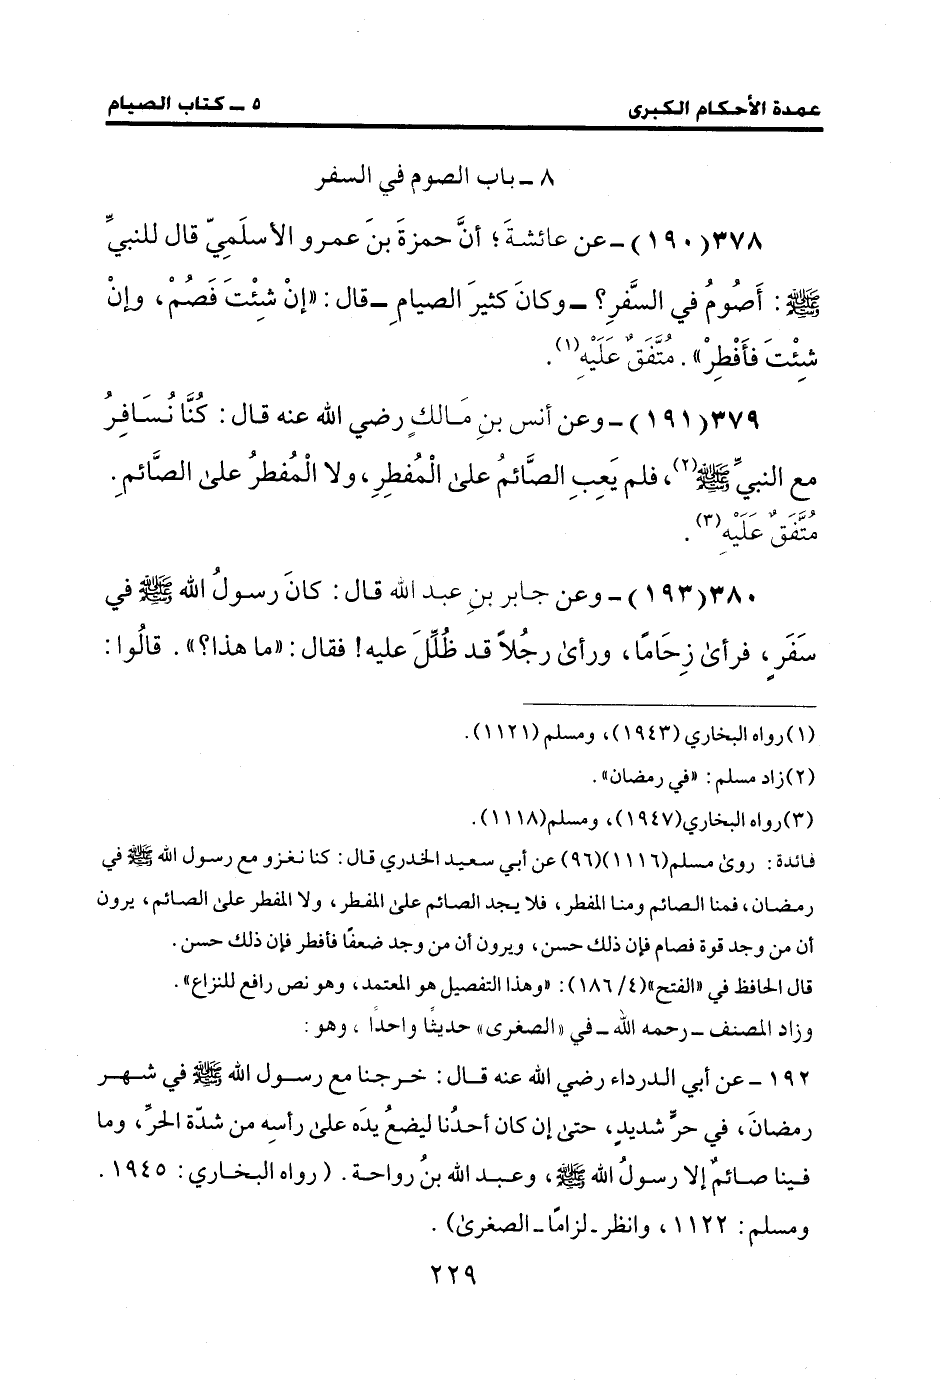 عمدة الأحكام الكبرى ٥ ـ كتاب الصيام
٨ ـ باب الصوم في السفر
٣٧٨(١٩٠) ـ عن عائشةَ؛ أنَّ حمزةَ بنَ عمرو الأسلَميّ قال للنبيِّ
ﷺ: أَصُومُ في السَّفرِ؟ ـ وكانَ كثيرَ الصيامِ ـ قال: «إنْ شِئْتَ فَصُمْ، وإنْ
شِئْتَ فأَفْطِرْ». مُتَّفَقٌ عَلَيْهِ(١).
٣٧٩(١٩١) ـ وعن أنس بنِ مَالكٍ رضي الله عنه قال: كُنَّا نُسَافِرُ
مع النبيِّ ﷺ(٢)، فلم يَعِبِ الصَّائمُ علىٰ الْمُفطِرِ، ولا الْمُفطرُ علىٰ الصَّائمِ.
مُتَّفَقٌ عَلَيْهِ(٣).
٣٨٠(١٩٣) ـ وعن جابر بنِ عبد الله قال: كانَ رسولُ الله ﷺ في
سَفَرٍ، فرأىٰ زِحَامًا، ورأىٰ رجُلاً قد ظُلِّلَ عليه! فقال: «ما هذا؟». قالُوا:
(١) رواه البخاري (١٩٤٣)، ومسلم (١١٢١).
(٢) زاد مسلم: «في رمضان».
(٣) رواه البخاري(١٩٤٧)، ومسلم(١١١٨).
فائدة: روىٰ مسلم(١١١٦)(٩٦) عن أبي سعيد الخدري قال: كنا نغزو مع رسول الله ﷺ في
رمضان، فمنا الصائم ومنا المفطر، فلا يجد الصائم علىٰ المفطر، ولا المفطر علىٰ الصائم، يرون
أن من وجد قوة فصام فإن ذلك حسن، ويرون أن من وجد ضعفًا فأفطر فإن ذلك حسن.
قال الحافظ في «الفتح»(٤/ ١٨٦): «وهذا التفصيل هو المعتمد، وهو نص رافع للنزاع».
وزاد المصنف ـ رحمه الله ـ في «الصغرى» حديثًا واحدًا، وهو:
١٩٢ ـ عن أبي الدرداء رضي الله عنه قال: خرجنا مع رسول الله ﷺ في شهر
رمضانَ، في حرٍّ شديدٍ، حتىٰ إن كان أحدُنا ليضعُ يدَه علىٰ رأسِه من شدّة الحرِّ، وما
فينا صائمٌ إلا رسولُ الله ﷺ، وعبد الله بنُ رواحة. (رواه البخاري: ١٩٤٥.
ومسلم: ١١٢٢، وانظر ـ لزامًا ـ الصغرىٰ).
٢٢٩